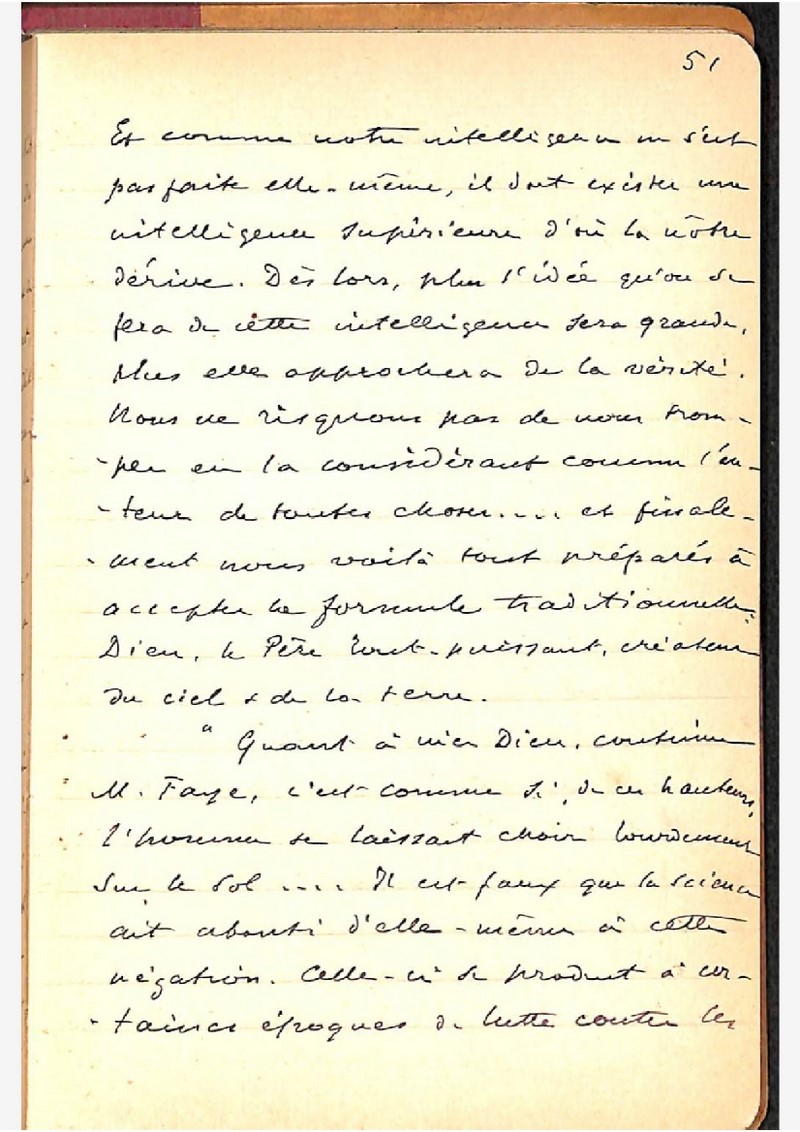 51
Et comme notre intelligence ne s'est
pas faite elle-même, il doit exister une
intelligence supérieure d'où la nôtre
dérive. Dès lors, plus l'idée qu'on se
fera de cette intelligence sera grande,
plus elle approchera de la vérité.
Nous ne risquons pas de nous trom-
-per en la considérant comme l'au-
-teur de toutes choses.... et finale-
-ment nous voilà tout préparés à
accepter la formule traditionnelle:
Dieu, le Père Tout-puissant, créateur
du ciel & de la terre.
" Quant à nier Dieu, continue
M. Faye, c'est comme si, de ces hauteurs,
l'homme se laissait choir lourdement
sur le sol .... Il est faux que la science
ait abouti d'elle-même à cette
négation. Celle-ci se produit à cer-
-taines époques de lutte contre les